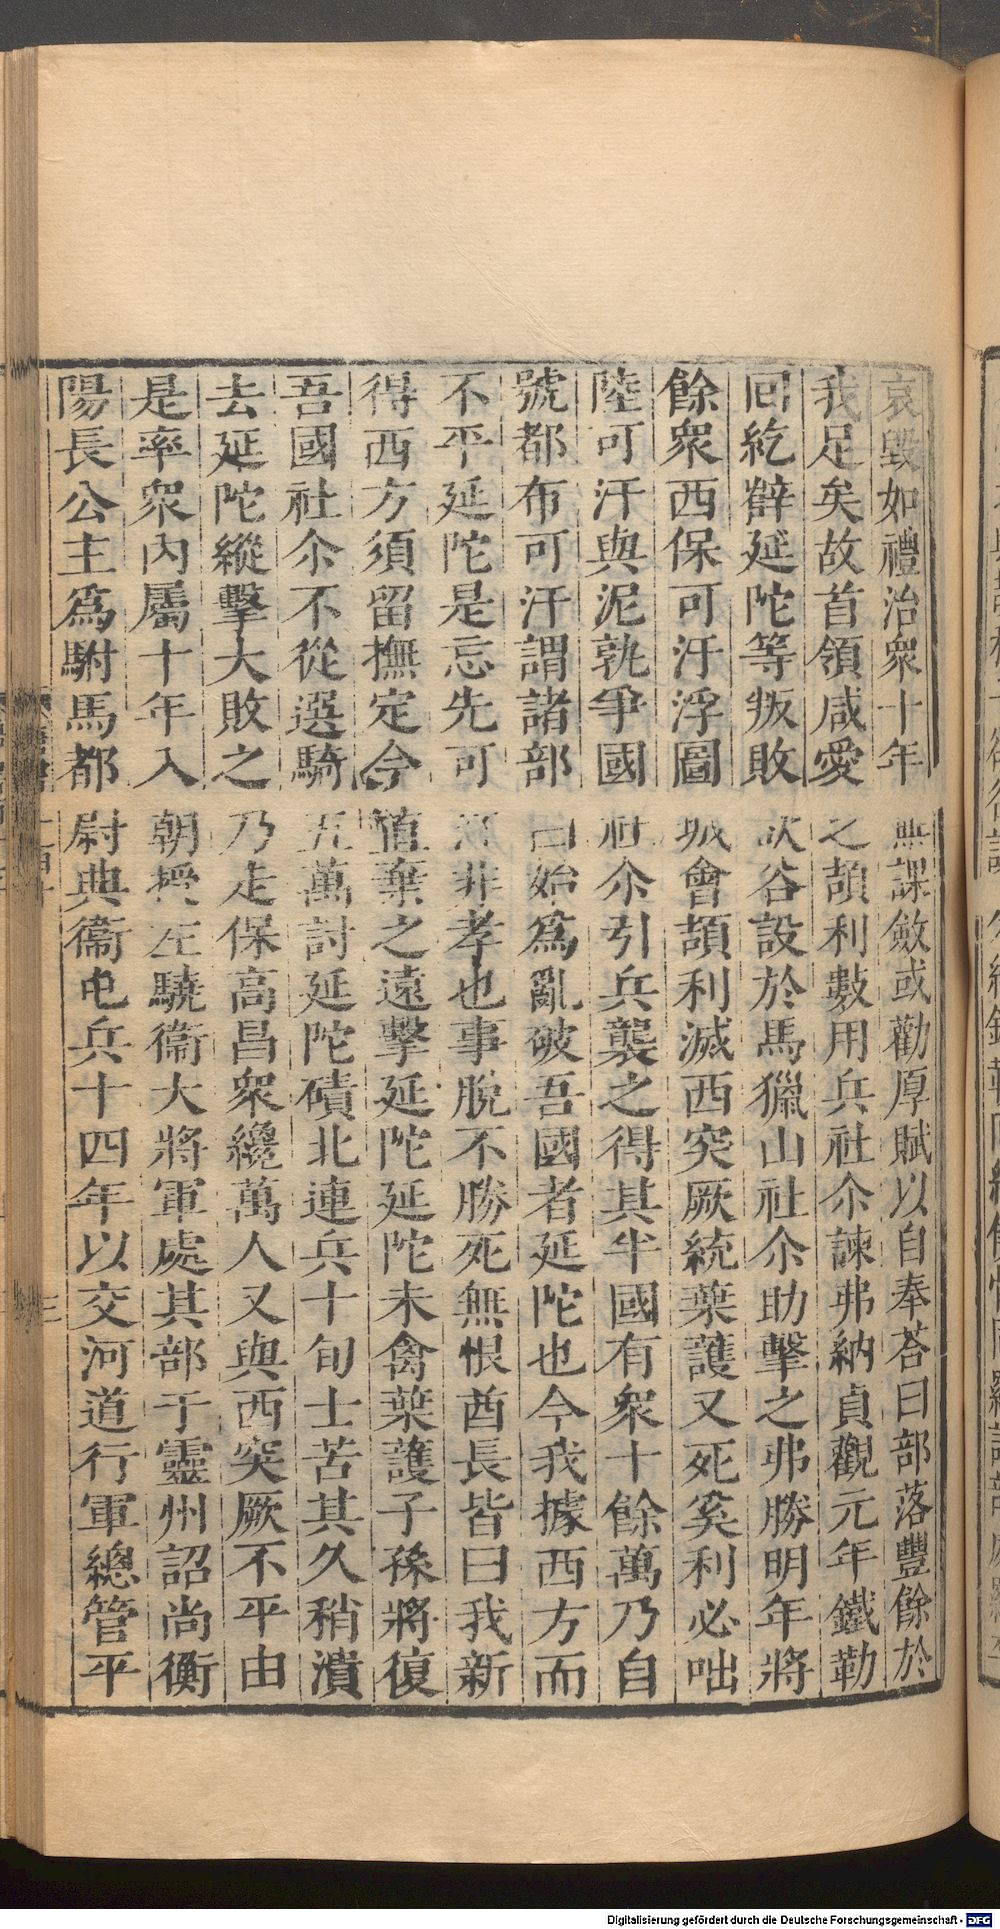 哀毀如禮治衆十年無課斂或勸厚賦以自奉荅曰部落豐餘於
我足矣故首領咸愛之頡利數用兵社尒諫弗納貞觀元年鐵勒
回紇薛延陀等叛敗欲谷設於馬獵山社尒助擊之弗勝明年將
餘衆西保可汗浮圖城會頡利滅西突厥統葉護又死奚利必咄
陸可汗與泥孰爭國社尒引兵襲之得其半國有衆十餘萬乃自
號都布可汗謂諸部曰始爲亂破吾國者延陀也今我據西方而
不平延陀是忘先可汗非孝也事脫不勝死無恨酋長皆曰我新
得西方須留撫定今值棄之遠擊延陀延陀未禽葉護子孫將復
吾國社尒不從選騎五萬討延陀磧北連兵十旬士苦其久稍潰
去延陀縱擊大敗之乃走保高昌衆纔萬人又與西突厥不平由
是率衆內屬十年入朝授左驍衞大將軍處其部于靈州詔尚衡
陽長公主爲駙馬都尉典衞屯兵十四年以交河道行軍總管平
Digitalisierung gefördert durch die Deutsche Forschungsgemeinschaft - DFG